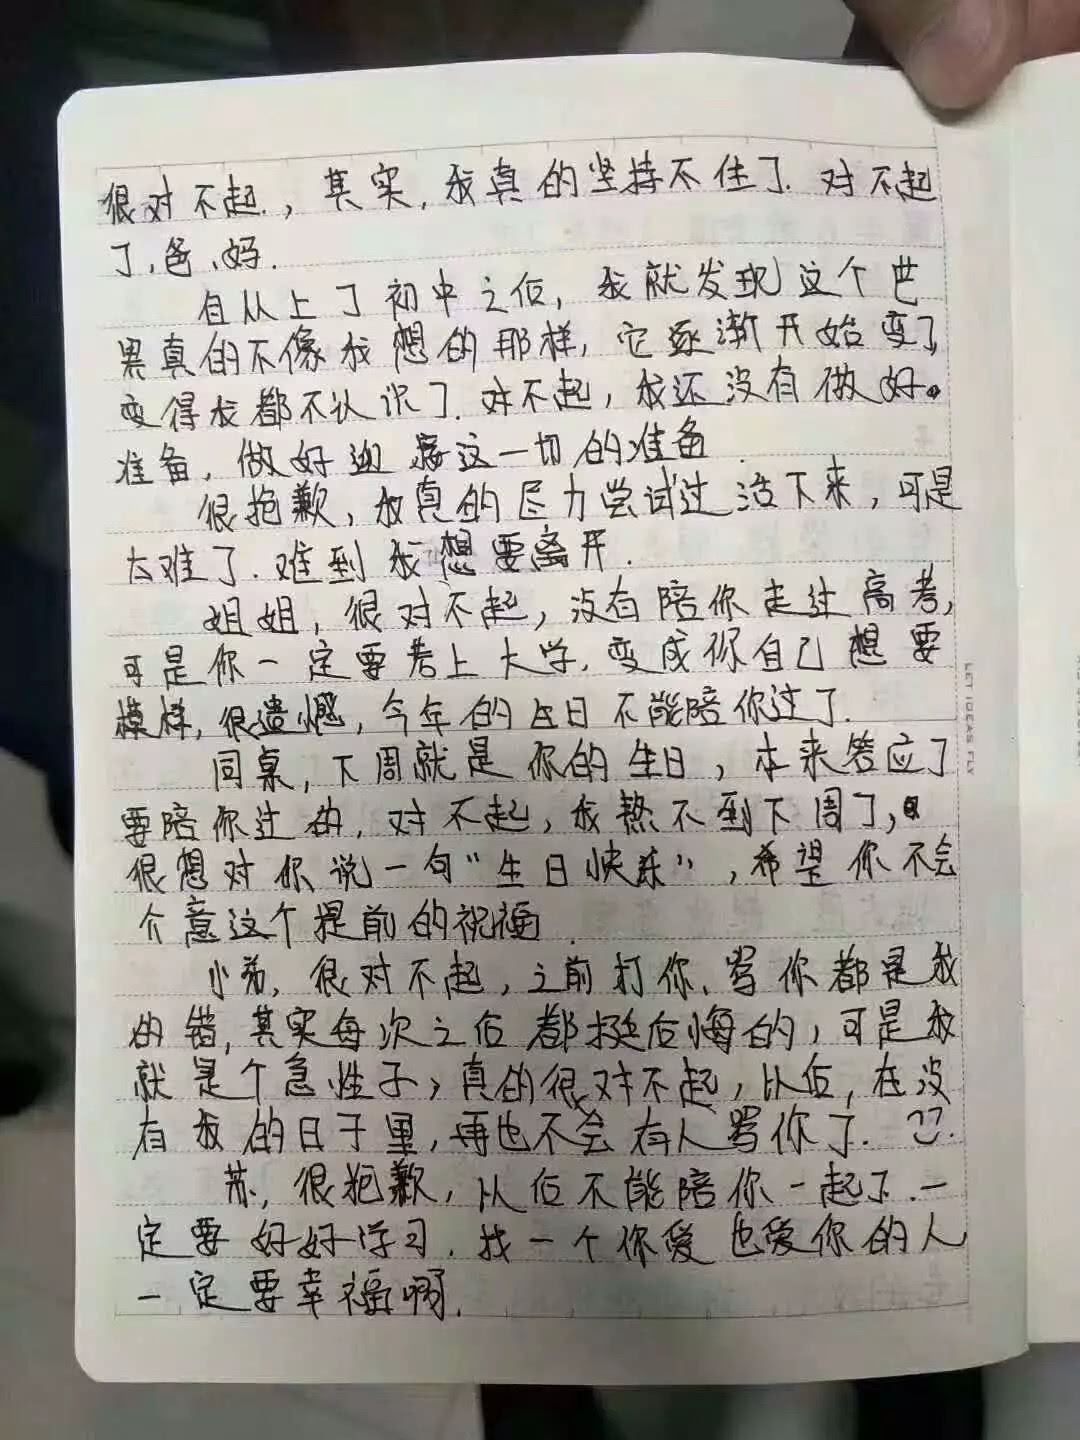 很对不起.，其实，我真的坚持不住了.对不起
了，爸、妈.
自从上了初中之后，我就发现这个世
界真的不像我想的那样，它逐渐开始变了，
变得我都不认识了.对不起，我还没有做好。
准备，做好迎接这一切的准备.
很抱歉，我真的尽力尝试过活下来，可是
太难了.难到我想要离开.
姐姐，很对不起，没有陪你走过高考，
可是你一定要考上大学.变成你自己想要
模样，很遗憾，今年的生日不能陪你过了.
同桌，下周就是你的生日，本来答应了
要陪你过的，对不起，我熬不到下周了，
很想对你说一句“生日快乐”，希望你不会
介意这个提前的祝福.
小，很对不起，之前打你、骂你都是我
的错，其实每次之后都挺后悔的，可是我
就是个急性子，真的很对不起，以后，在没
有我的日子里，再也不会有人骂你了.
苏，很抱歉，以后不能陪你一起了.一
定要好好学习.找一个你爱也爱你的人
一定要幸福啊.
LET IDEAS FLY